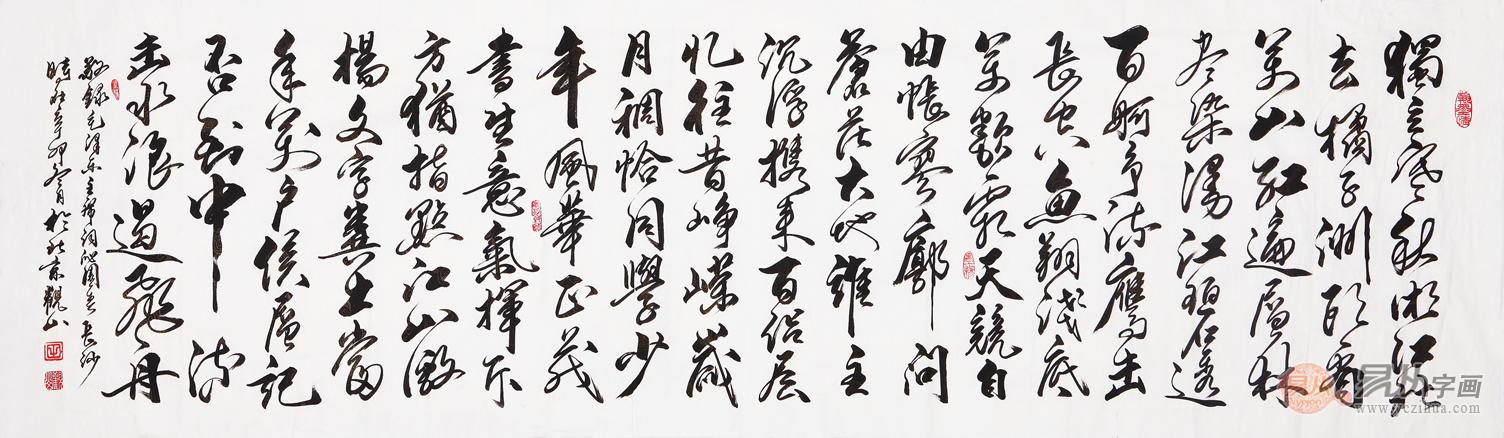 獨立寒秋湘江北
去橘子洲頭看
萬山紅遍層林
尽染漫江碧透
百舸爭流鷹击
長空魚翔淺底
萬類霜天競自
由悵寥廓問
蒼茫大地誰主
沉浮携来百侣曾
忆往昔崢嶸歲
月稠恰同學少
年風華正茂
書生意氣揮斥
方猶指點江山激
楊文字糞土當
年萬户侯曾記
否到中流
击水浪遏飛舟
敬錄毛澤東主席詞沁園春長沙
時在辛卯冬月於北京觀山
易从字画
www.yczihua.com